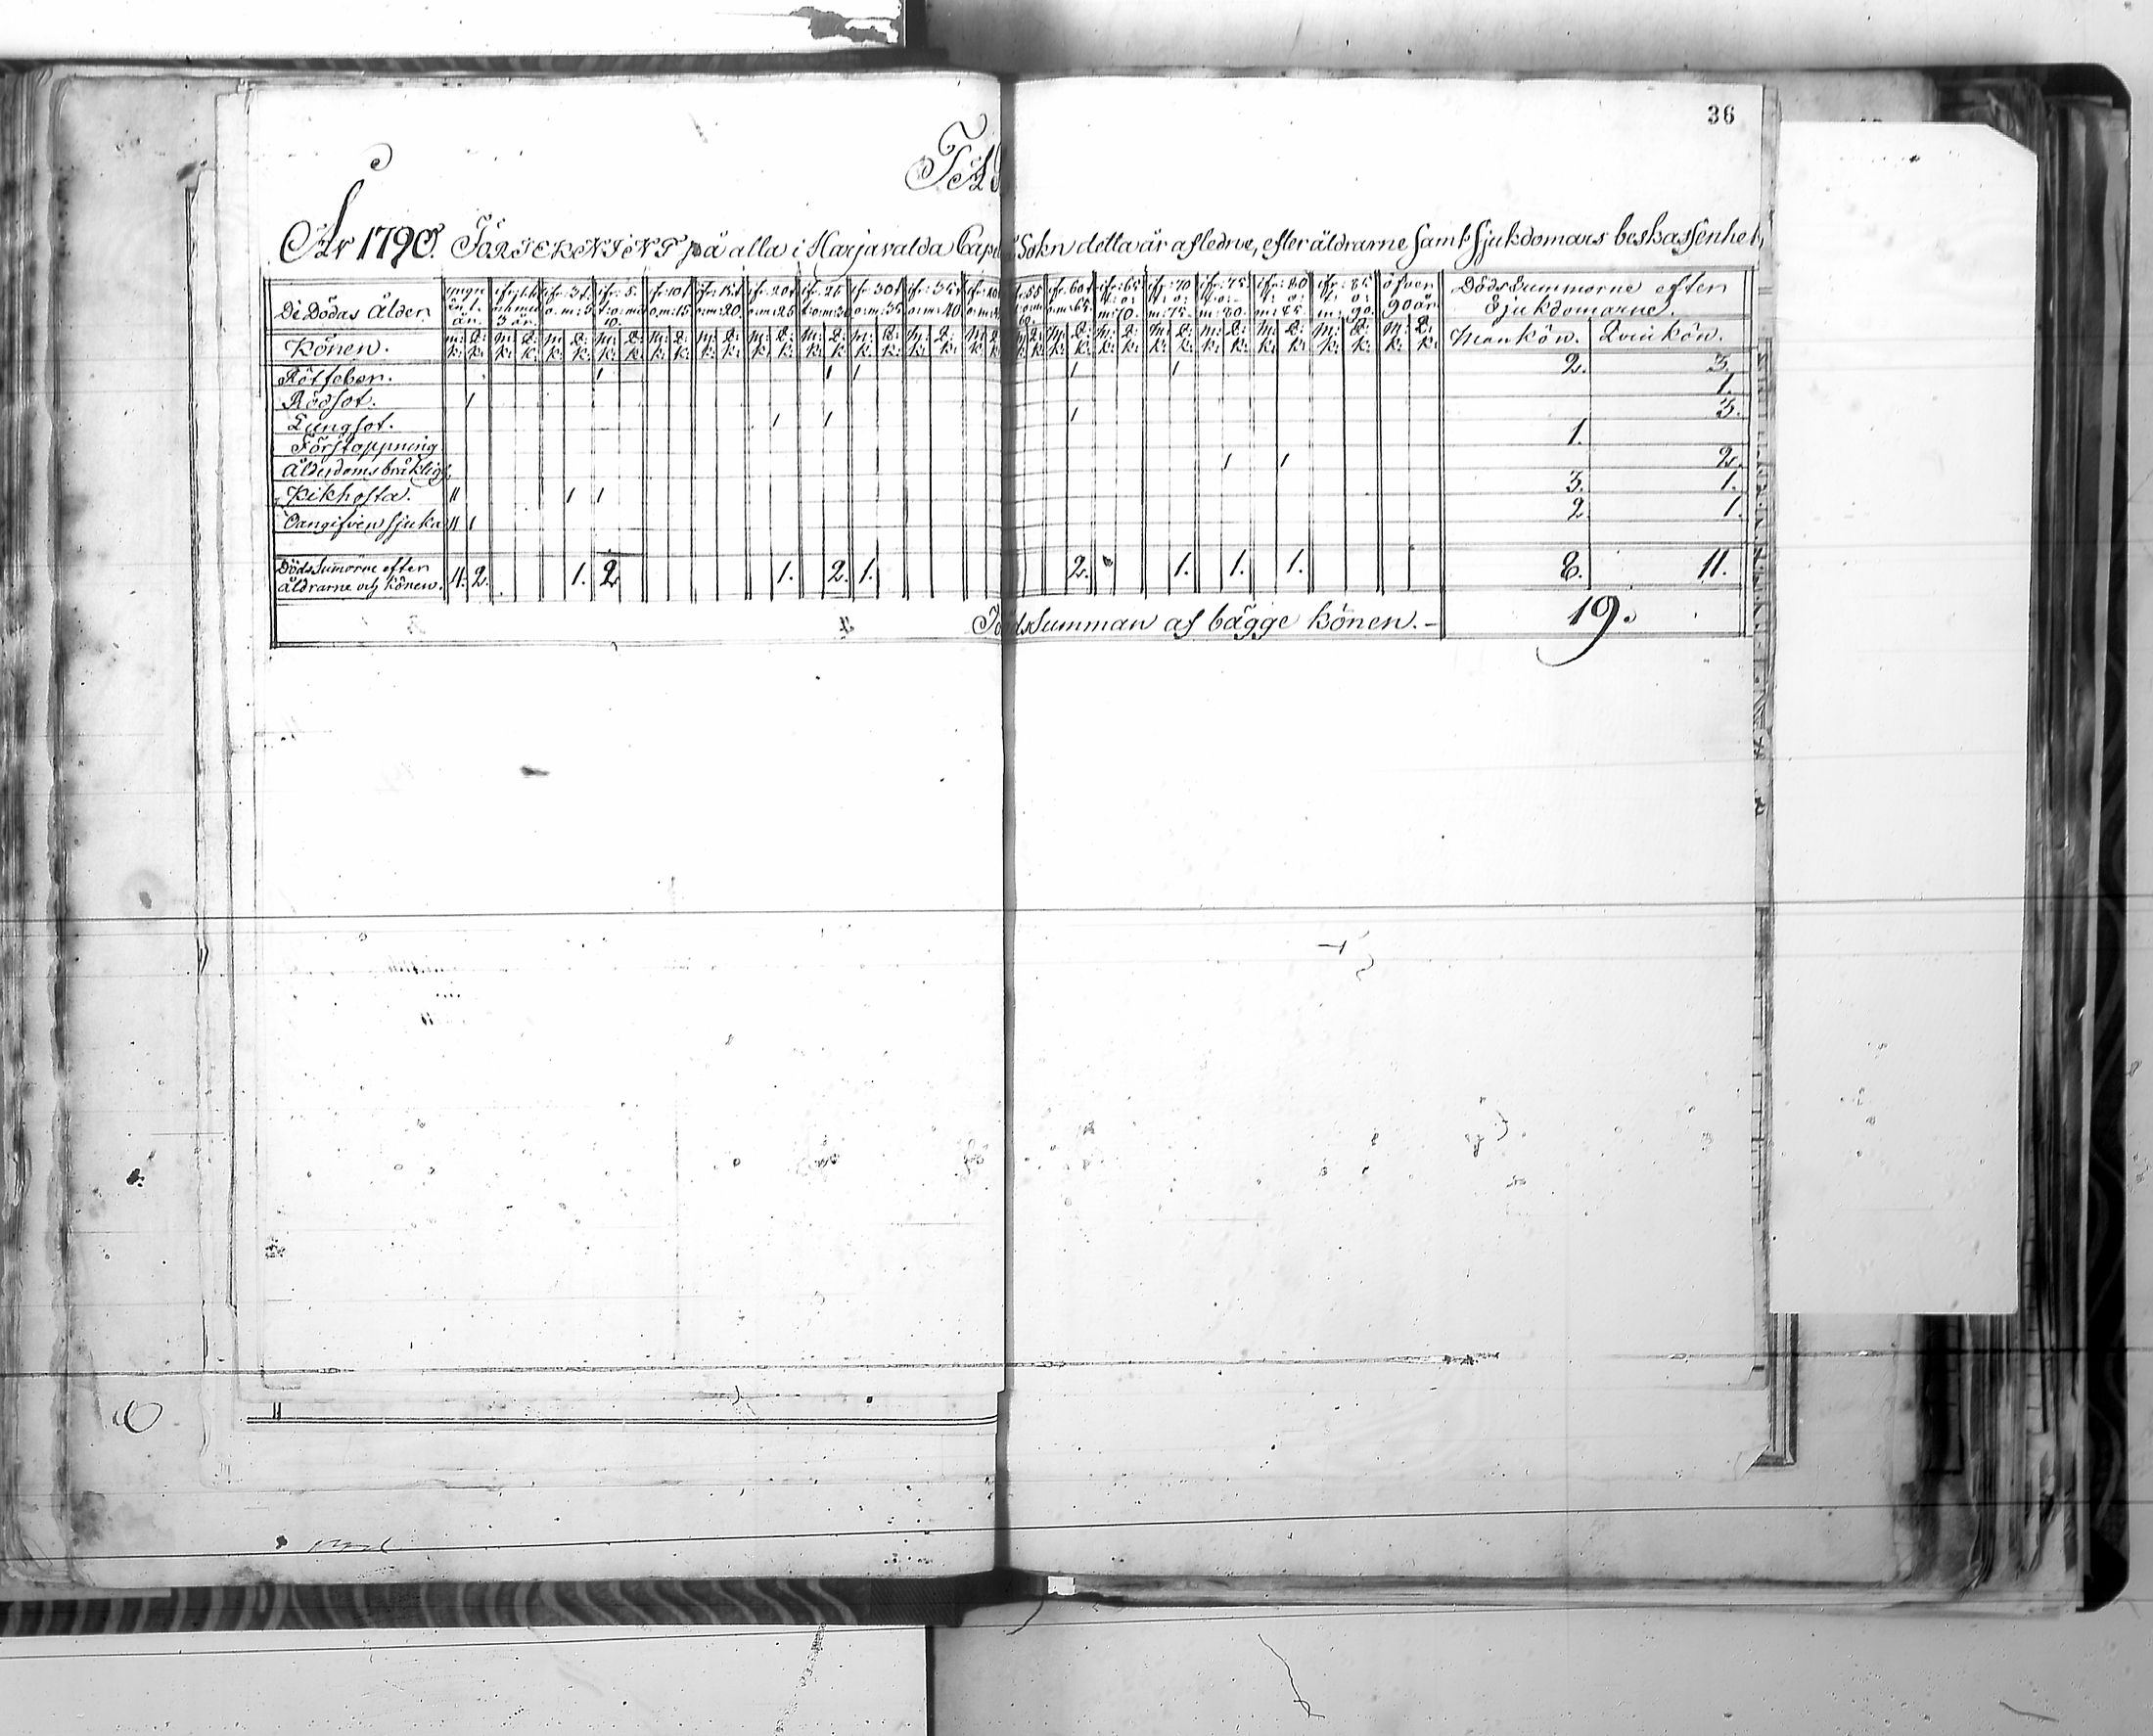 36
År 1790. FÖRTEKNING på alla i Harjavalda Capell Sokn detta år afledne, efter åldrarne samt Sjukdomars beskaffenhet,
De Dödas Ålder. yngre än 1. år. 3 år. ifr: 3 t. o. m: 5 ifr: 5. t: o: m: 10. ifr 10 t o: m: 15 ifr: 15 t o: m: 20. ifr: 20 t o: m: 25 ifr: 25 t: o: m: 30 ifr: 30 t o: m: 35 ifr: 35 t o: m: 40 ifr. 60 t o: m: 65. ifr: 65 t: o: m: 70. ifr: 70 t: o: m: 75. ifr: 75 t: o: m: 80. ifr: 80 t: o: m: 85. ifr: 85 t: o: m: 90. öfver 90 år Döds Summorne efter Sjukdomarne.
Könen. M: k: Q: k: M: k: Q: k: M: k: Q: k: M: k: Q: k: M: k: Q: k: M: k: Q: k: M: k: Q: k: M: k: Q: k: M: k: Q: k: M: k: Q: k: Mankön. Qvinkön.
Rötfeber. 1 1 1 1 1 2. 3.
Rödsot. 1 1.
Lungsot. 1 1 1 3.
Förstoppning 1.
Ålderdoms bräkligh. 1 1 2.
Kikhosta. 11 1 1 3. 1.
Oangifven sjukd. 11 1 2. 1.
Döds Summorne efter åldrarne och Könen. 4. 2. 1. 2 1. 2. 1. 2. 1. 1. 1. 8. 11.
Döds Summan af bägge könen. – 19.